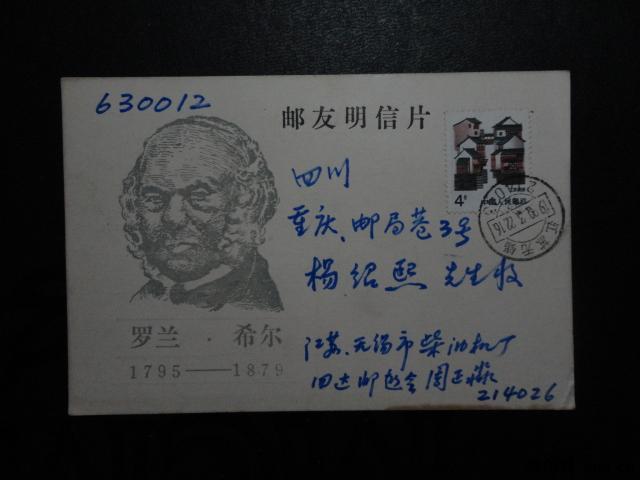 630012
邮友明信片
4分
中国人民邮政
四川
重庆、邮局巷3号
杨绍熙 先生收
罗兰·希尔
1795——1879
江苏、无锡市柴油机厂
江苏无锡
214026